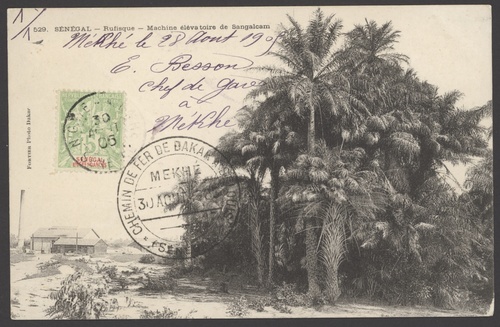 1/1
529. SÉNÉGAL — Rufisque — Machine élévatoire de Sangalcam
Mékhé le 28 Aout 19
E. Besson
Chef de Gare
à
Mékhé
30
05
5
SÉNÉGAL
CHEMIN DE FER DE DAKAR
MEKHE
30 AO
FORTIER Photo Dakar